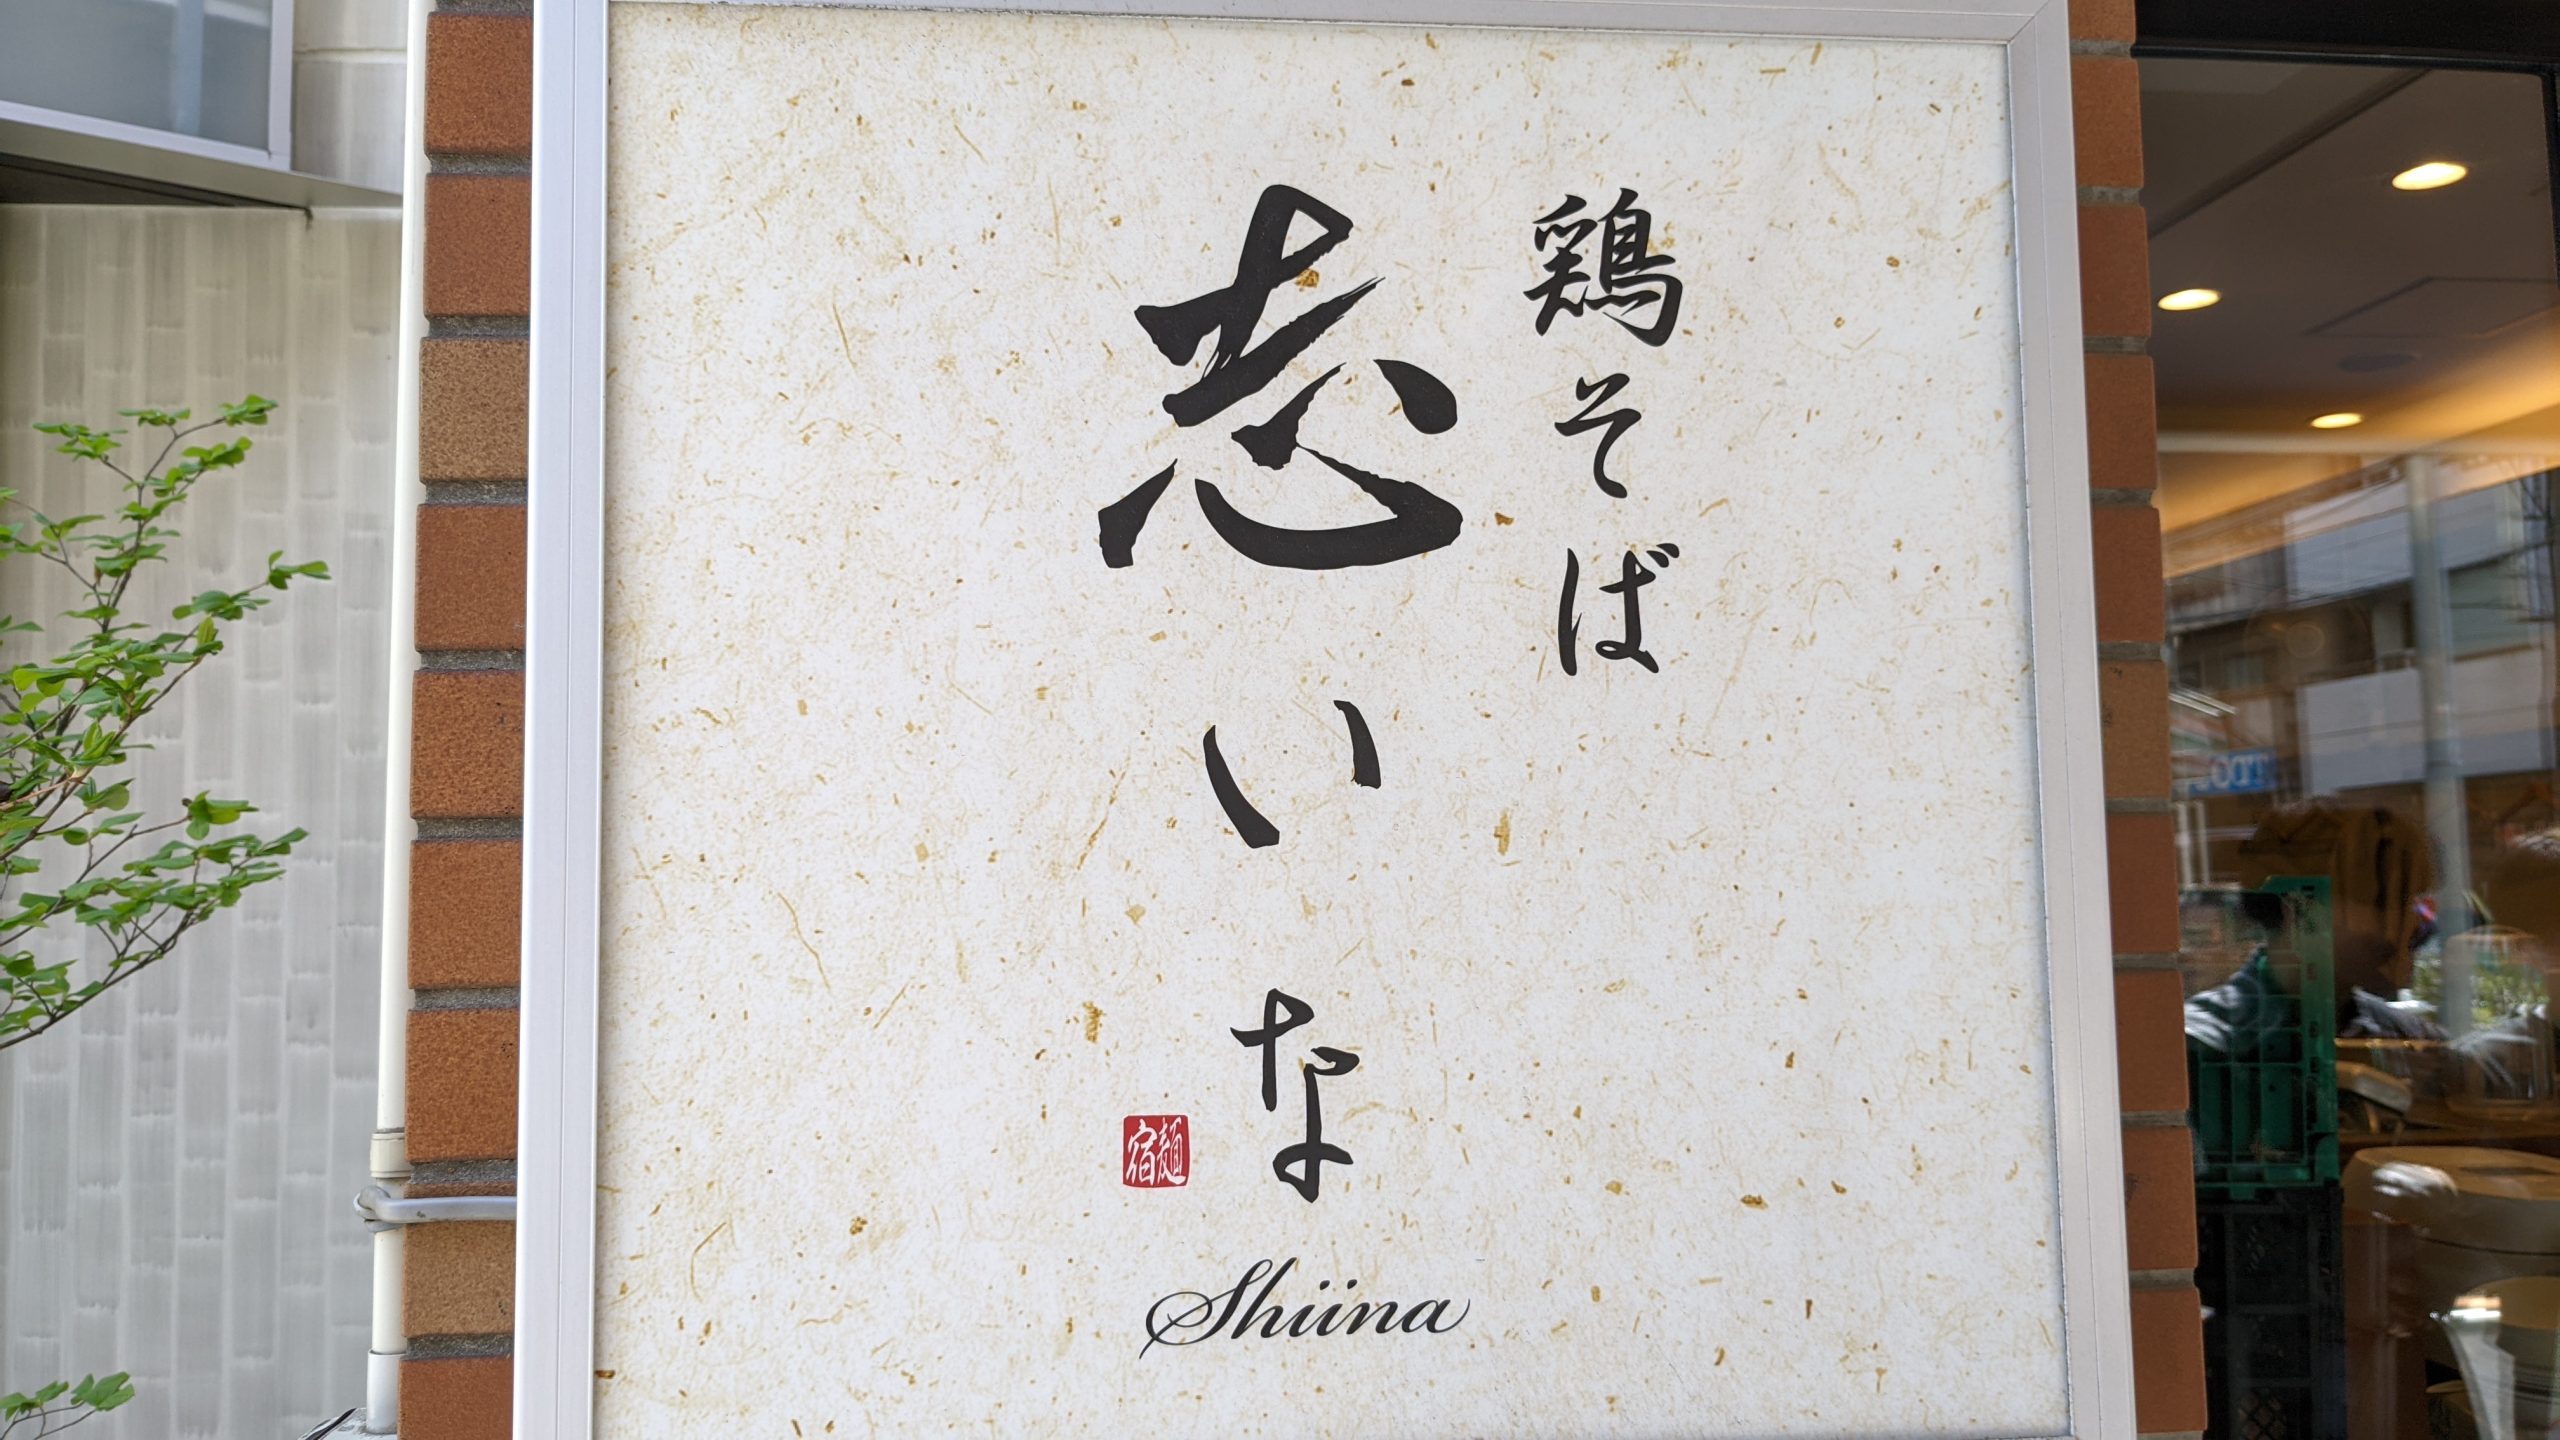 鶏そば
志いな
麺宿
Shiina